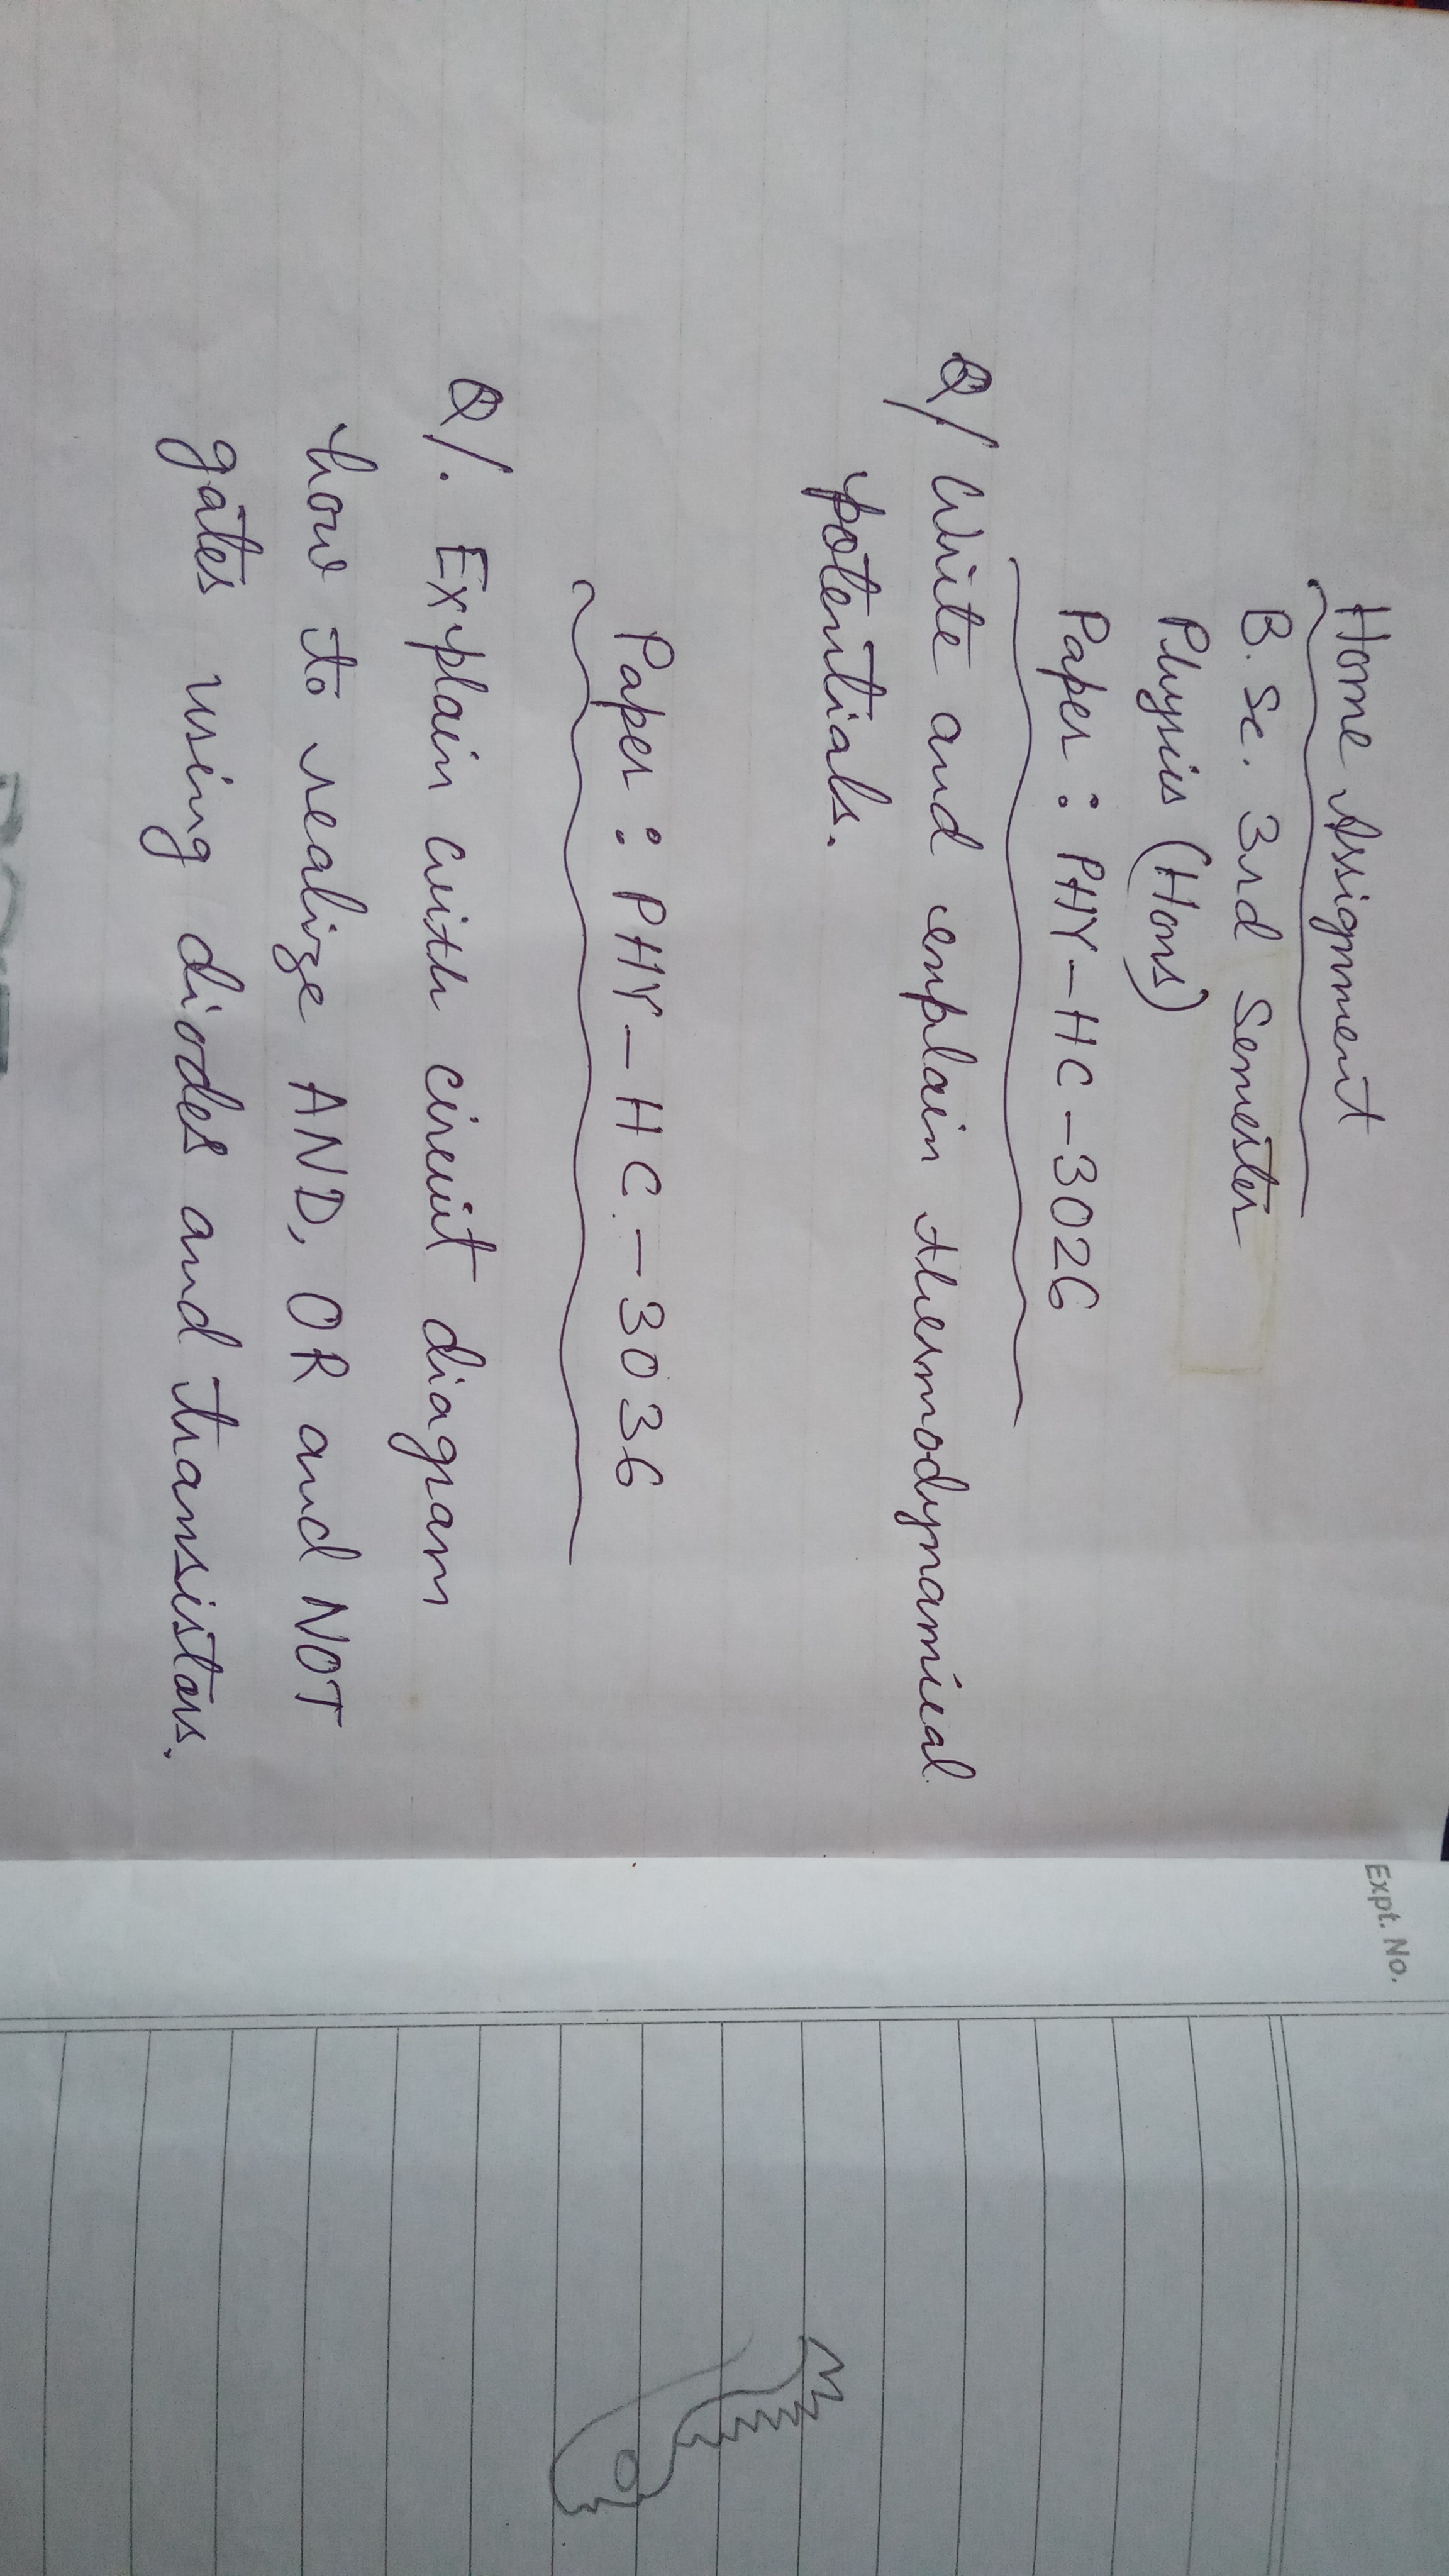 Home Assignment
B.Sc. 3rd Semester
Physics (Hons)
Paper : PHY-HC-3026
Q/ Write and explain thermodynamical
potentials.
Paper : PHY-HC-3036
Q/. Explain with circuit diagram
how to realize AND, OR and NOT
gates using diodes and transistors.
Expt. No.